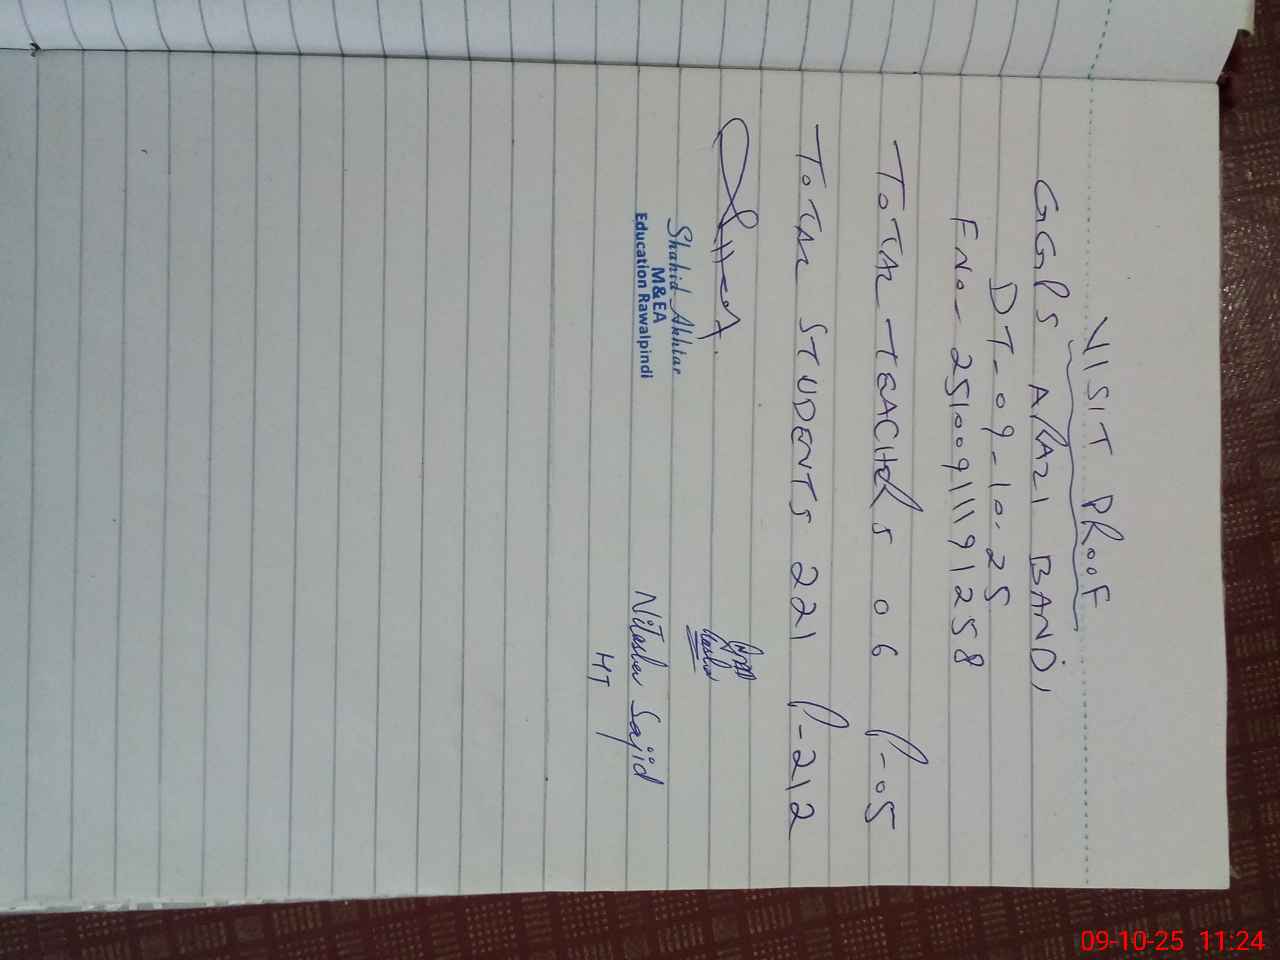 VISIT PROOF
GGPS ARAZI BANDI
DT- 09-10-25
FNo- 25100911191258
TOTAL TEACHERS 06 P-05
TOTAL STUDENTS 221 P-212
Shahid Akhtar
M&EA
Education Rawalpindi
Nitasha Sajid
HT
09-10-25 11:24